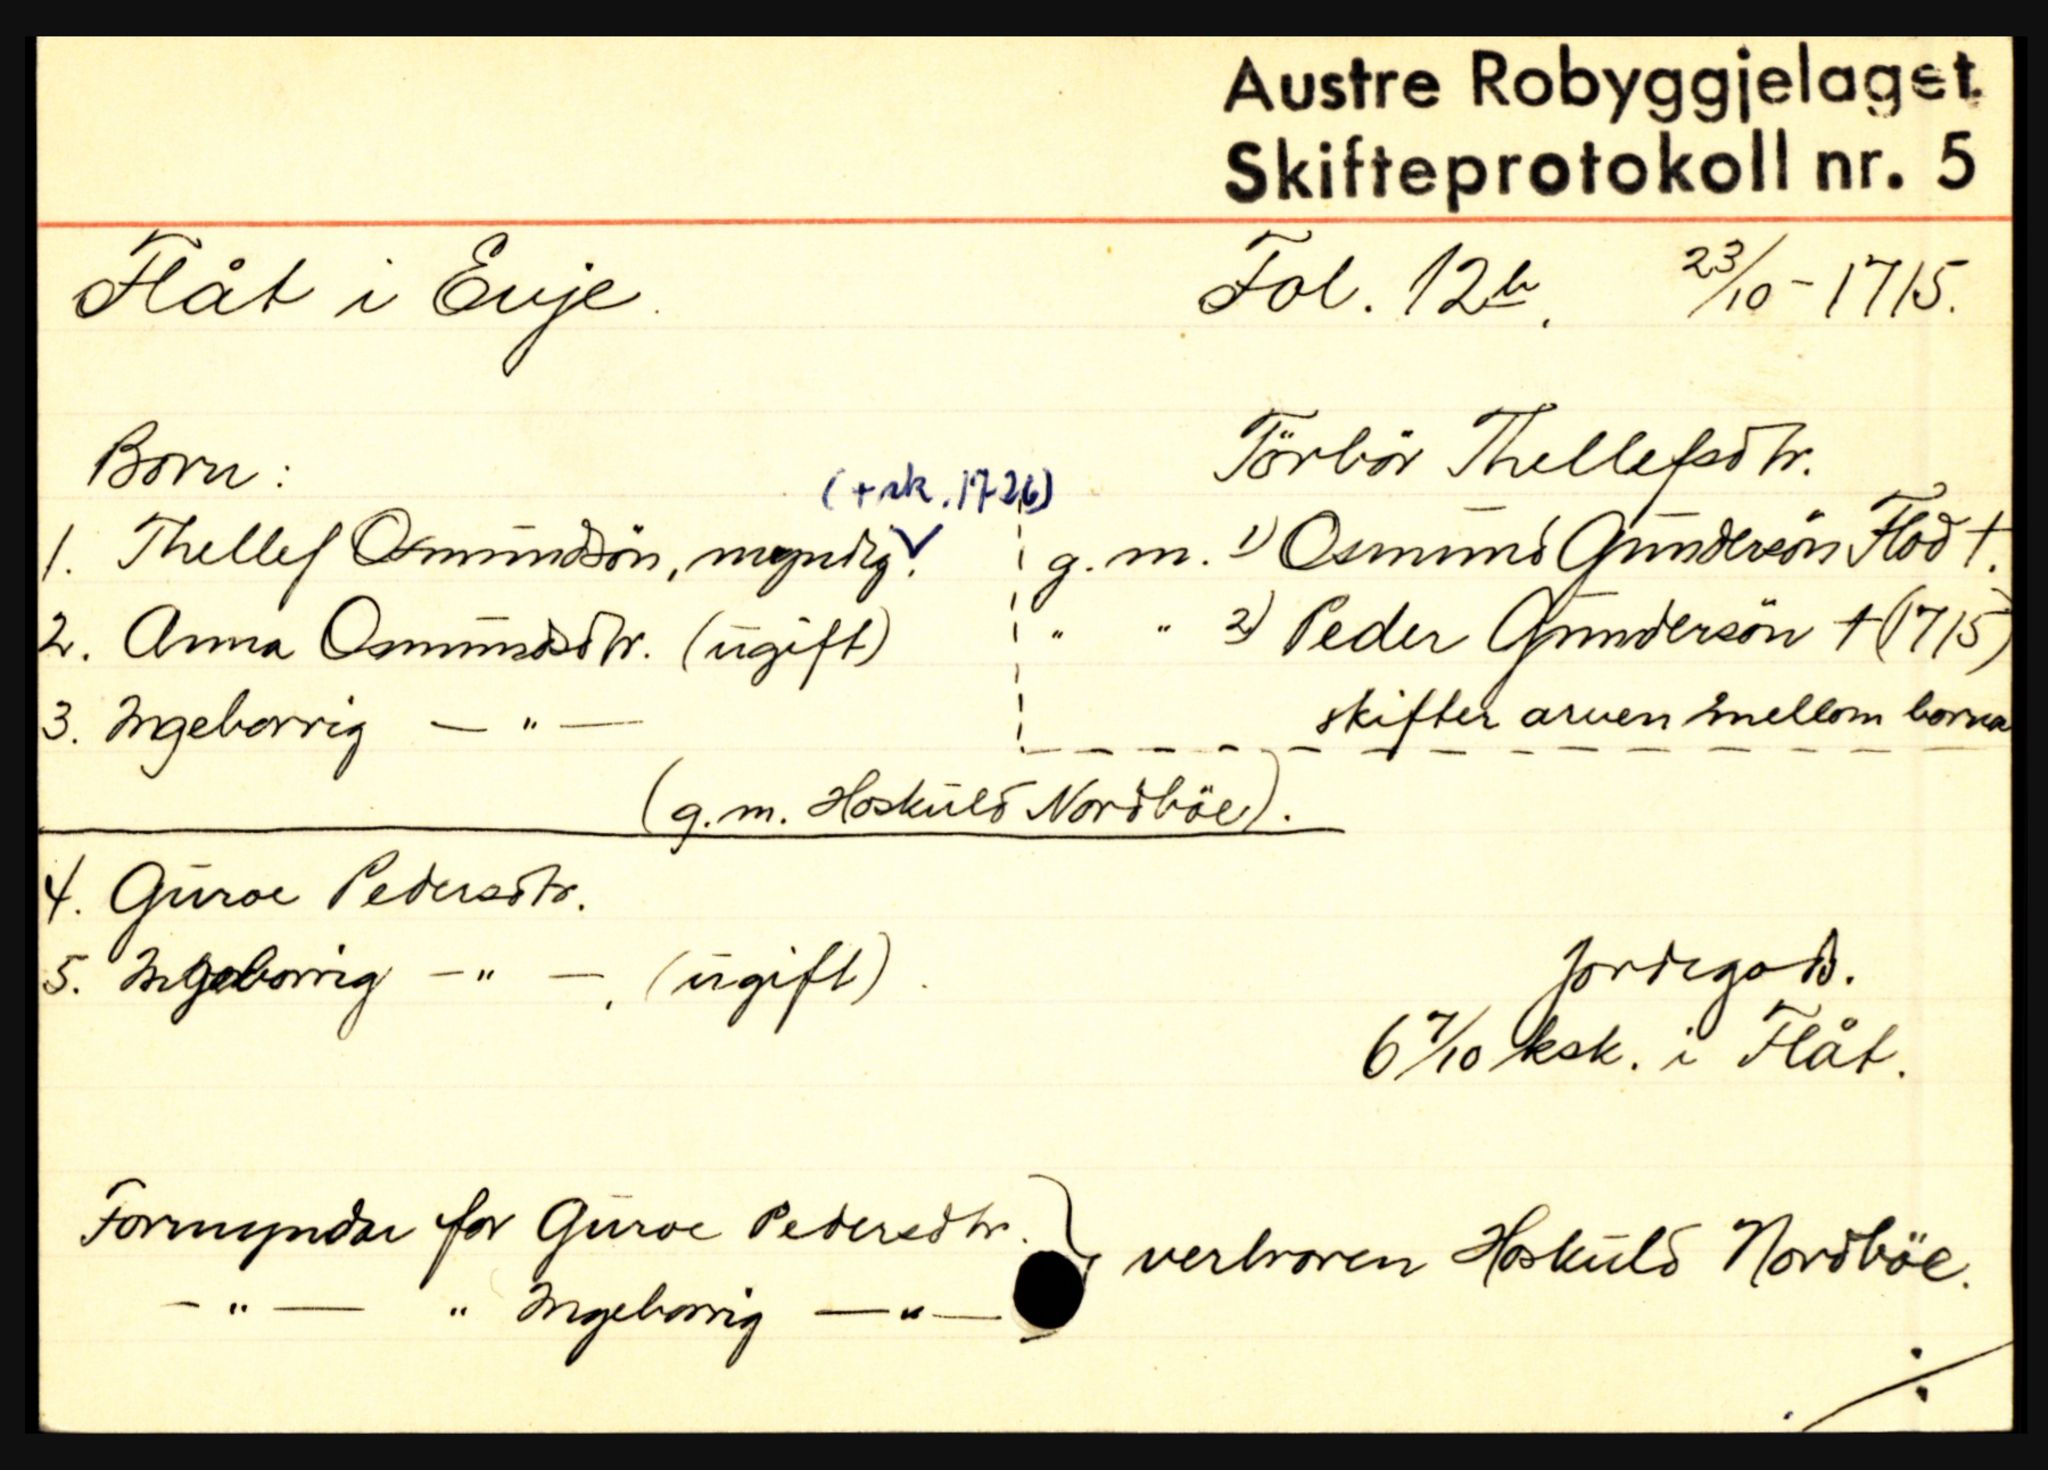 Austre Robyggjelaget.
Skifteprotokoll nr. 5
Flåt i Evje. Fol. 12b. 23/10 - 1715.
Born: Törbör Thellefsdtr.
(+ sk. 1726)
1. Thellef Osmundsön, myndig. g. m. 1) Osmund Gundersön Flod †.
2. Anna Osmundsdtr. (ugift) " " 2) Peder Gundersön † (1715)
3. Ingeborrig — " — skifter arven imellom borna
(g. m. Hoskuld Nordböe).
4. Guroe Pedersdtr.
5. Ingeborrig — " —. (ugift). Jordegods.
6 7/10 ksk. i Flåt.
Formyndar for Guroe Pedersdtr. } verbroren Hoskuld Nordböe.
— " — " Ingeborrig — " —
./.